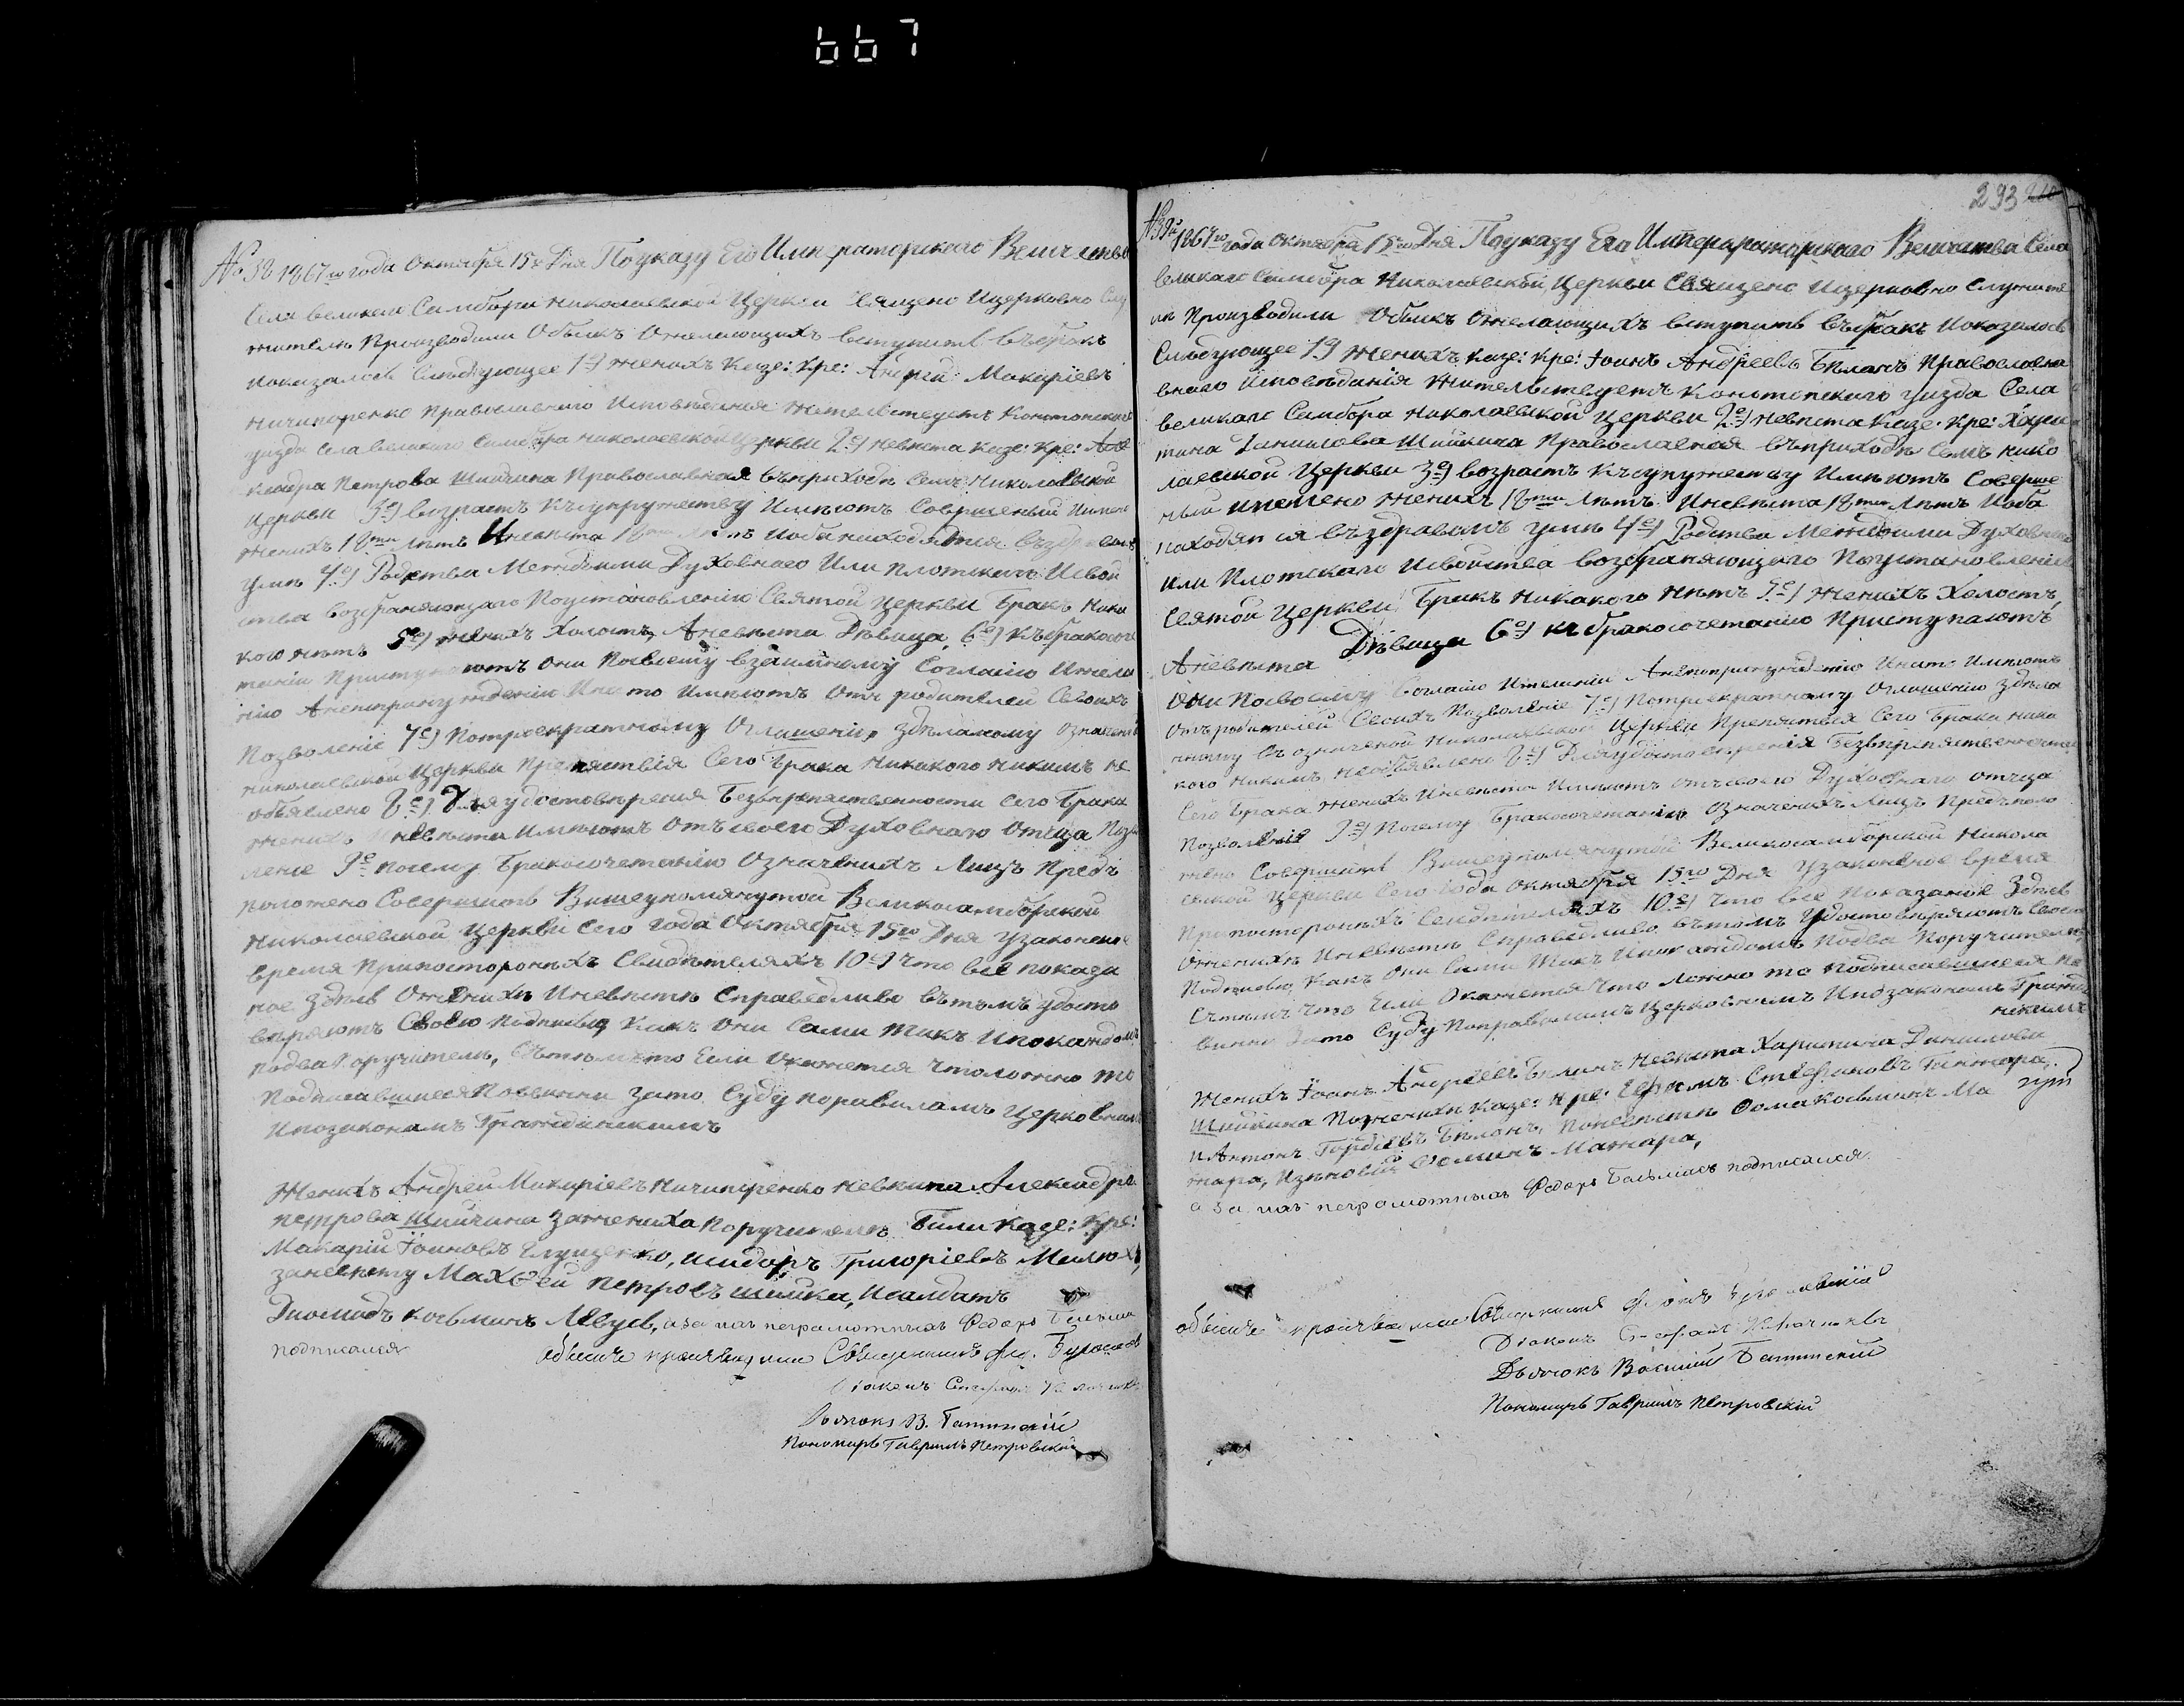 667
№ 38 1867го года Октября 15го Дня По указу Его Императорскаго Величества
Села великаго Самбора Николаевской Церкви Священо Ицерковно Слу
жители Производили Обыскъ Ожелающихъ вступить въбракъ
показалось Следующее 1е) женихъ Казе: Кре: Андрей Макаріевъ
Ничипоренко Православнаго Исповѣданія жительствуетъ Конотопскаго
уизда Села великаго Самбора николаевской Церкви 2е) невѣста Казе: Кре: Але
ксандра Петрова Шийчина Православная въприходѣ Семъ Николаевской
Церкви 3е) возрастъ Късупружеству Имѣютъ Совершеный Имено
женихъ 18ти лѣтъ Иневѣста лѣтъ Иоба находятся въздравомъ
умѣ 4е) Родства Междоими Духовнаго Или Плотскаго Исвой
ства возбраняющаго Поустановленію Святой Церкви Бракъ Ника
кого нѣтъ 5е) женихъ Холостъ, Аневѣста Дѣвица, 6е) Къбракосоче
танію Приступаютъ Они Посвоему взаимному Согласію Ижела
нію Анепринужденію Ина то Имѣютъ Отъ родителей Своихъ
Позволеніе 7е) Потроекратному Оглашенію Здѣланому Означеной
Николаевской Церкви Препятствія Сего Брака Никакого никимъ не
объявлено 8е) Для удостовѣренія Безъпрепятственности Сего Брака
женихъ Иневѣста Имѣютъ Отъ своего Духовнаго Отъца Позво
леніе 9е Посему Бракосочетанію Означеныхъ Лицъ Предъ
положено Совершить Вишеупомянутой Великосамборской
Николаевской Церкви Сего года Октября 15го Дня Узаконеное
время Припостороныхъ Свидѣтеляхъ 10е) Что все показа
ное Здѣсь Оженихѣ Иневѣстѣ Справедливо вътомъ удосто
вѣряютъ Своею Подписью Какъ Они Сами Такъ Ипокаждомъ
подва Поручителя, Сътѣмъ что Если Окажется Что ложно то
Подписавшиеся Повинни Зато Суду поправиламъ Церковнымъ
Ипозаконамъ Гражданскимъ
Женихъ Андрей Макаріевъ Ничипоренко невѣста Александра
Петрова Шийчина Зажениха Поручители Били Казе: Кре:
Макарій Іоиновъ Глущенко, Исидоръ Григоріевъ Милюха,
заневѣсту Махѳей Петровъ Шийка, Исалдатъ
Диомидъ Косьминъ Левусь, а за ихъ неграмотныхъ Федоръ
подписался
Обыскъ производили Священникъ
Діаконъ
Дьячокъ В. Батинскій
Пономарь Гавріилъ Петровскій
293
№39й 1867го года Октября 15го Дня По указу Его Императорскаго Величества Села
великаго Самбора Николаевской Церкви Священо Ицерковно Служите
ли Производили Обыскъ Ожелающихъ вступить въбракъ Показалось
Слѣдующее 1е) женихъ Казе: Кре: Іоинъ Андреевъ Бѣланъ Православна
внаго Исповѣданія жительствуетъ Конотопскаго уизда Села
великаго Самбора николаевской Церкви 2е) невѣста Казе: Кре: Хари
тина Данилова Шийкина Православная въприходѣ Семъ нико
лаевской Церкви 3е) возрастъ Късупружеству Имѣютъ Соверше
ный имено женихъ 18ти лѣтъ Иневѣста 18ти лѣтъ Иоба
находятся въздравомъ умѣ 4е) Родства Междоими Духовнаго
или Плотскаго Исвойства возбраняющаго Поустановленію
Святой Церкви Бракъ никакого нѣтъ 5е) женихъ Холостъ,
Аневѣста Дѣвица 6е) къ бракосочетанію Приступаютъ
Они Посвоему Согласію Ижеланію Анепринужденію Инато Имѣютъ
Отъродителей Своихъ Позволеніе 7е) Потроекратному Оглашенію Здѣла
нному въ означеной Николаевской Церкви Препятствія Сего Брака Ника
кого никимъ необъявлено 8е) Дляудостовѣренія Безъпрепятственности
Сего Брака Женихъ Иневѣста Имѣютъ отъсвоего Духовнаго Отъца
Позволеніе 9е) Посему Бракосочетанію Означеныхъ Лицъ Предъполо
жено Совершить Вишеупомянутой Великосамборской Никола
евской Церкви Сего года Октября 15го Дня Узаконеное время
Припостороныхъ Свидѣтеляхъ 10е) Что все Показаное Здѣсь
Оженихѣ Иневѣстѣ Справедливо вътомъ Удостовѣряютъ Своею
Подписью Какъ Они Сами Такъ Ипокаждомъ Подва Поручителя,
Сътѣмъ что Если Окажется Что ложно то Подписавшиеся По
винни Зато Суду Поправиламъ Церковнымъ Ипозаконамъ Гражда
нскимъ
Женихъ Іоанъ Андреевъ Бѣланъ Невѣста Харитина Данилова
Шийкина Поженихѣ Казе: Кре: Ефимъ Стефановъ
Иантонъ Гордѣевъ Бѣланъ, Поневѣстѣ Фома Косьминъ Ма
жара, Изѣновій Фоминъ Мажара,
а за ихъ неграмотныхъ Федоръ подписался.
обыскъ производили Священникъ
Діаконъ
Дьячокъ Василій Батинскій
Пономарь Гавріилъ Петровскій